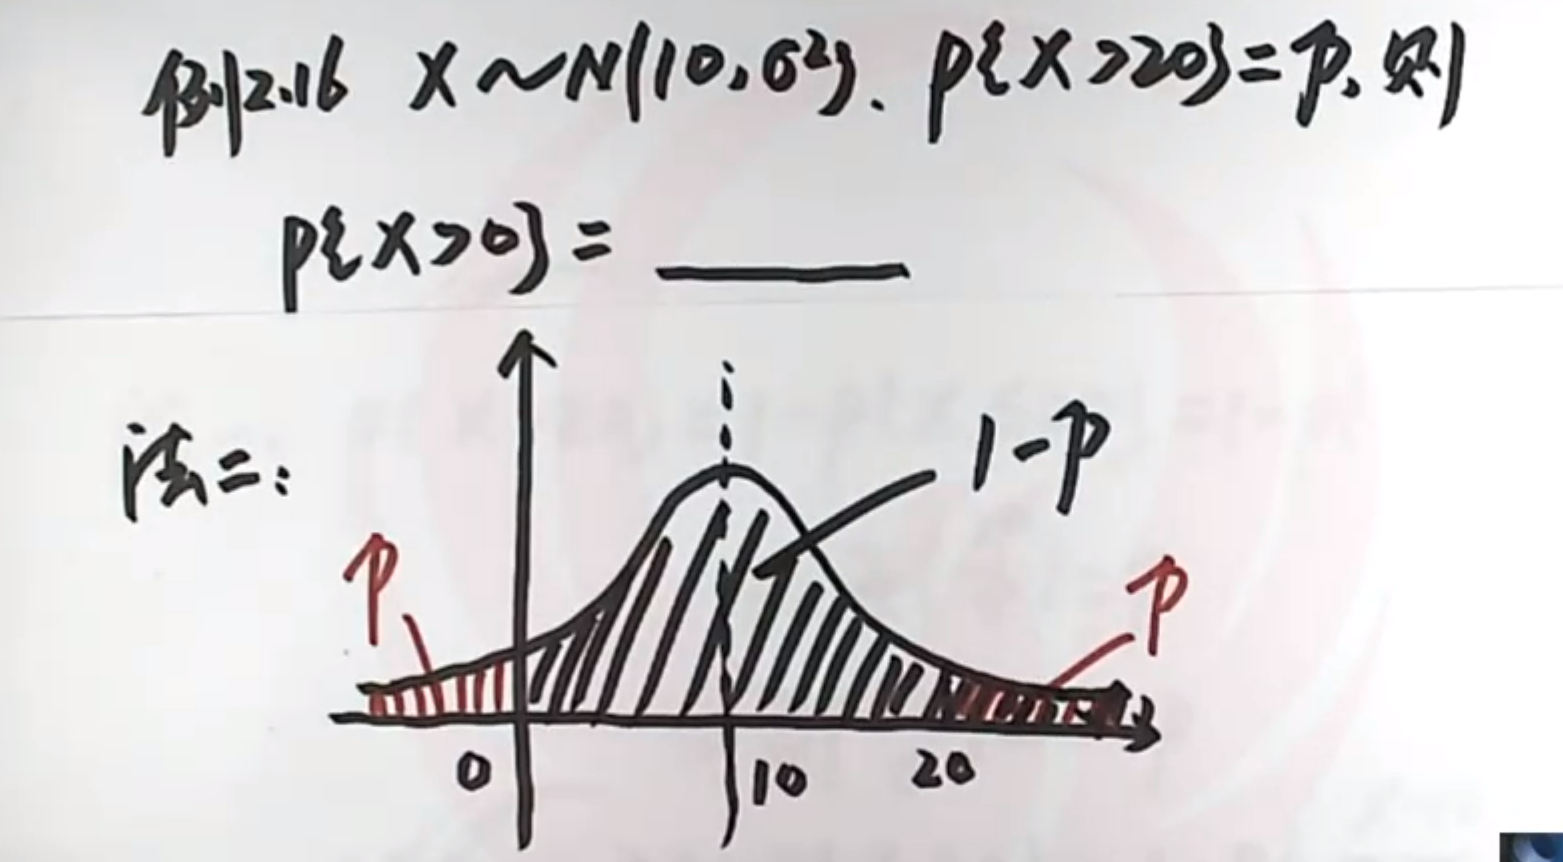 例2.16 X~N(10,σ²). P{X>20}=p, 则
P{X>0}=
法二:
1-p
p
p
0 10 20